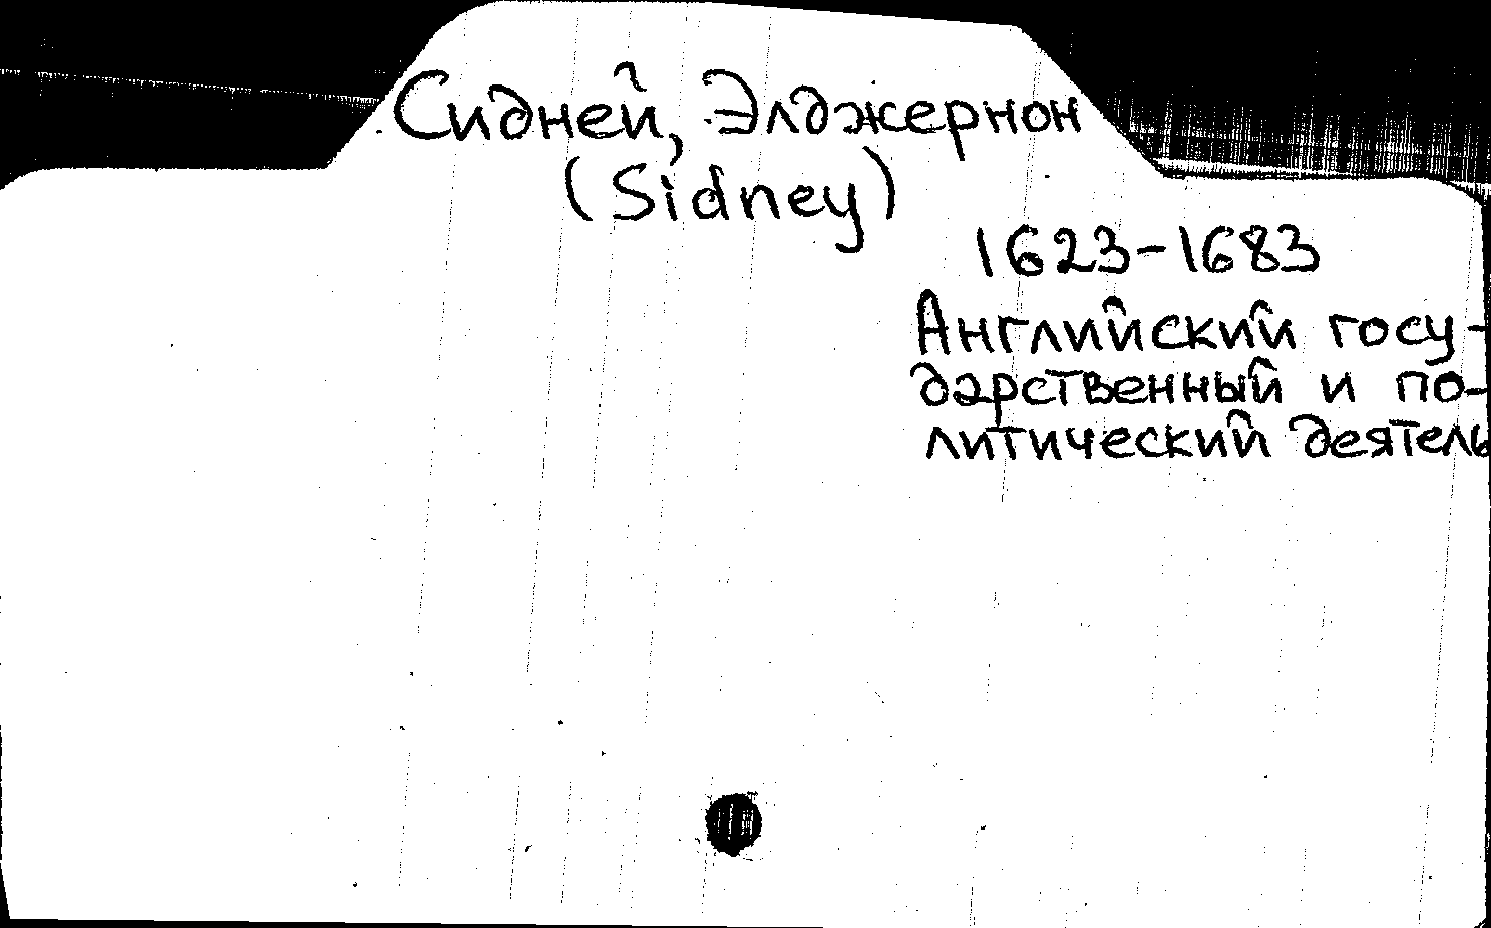 Сидней, Элджернон
(Sidney)
1623-1683
Английский госу-
дарственный и по-
литический деятель